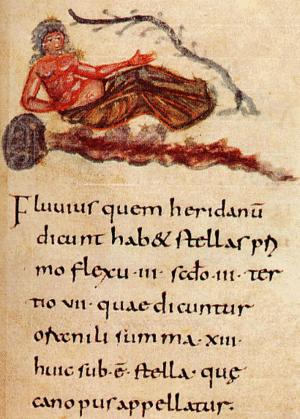 Fluvius quem heridanū
dicunt hab& stellas pri
mo flexu ·iii· scdō ·iii· ter
tio vii· quae dicuntur
nili summa· xiii·
huic sub·ē· stella· quę
canopus appellatur·